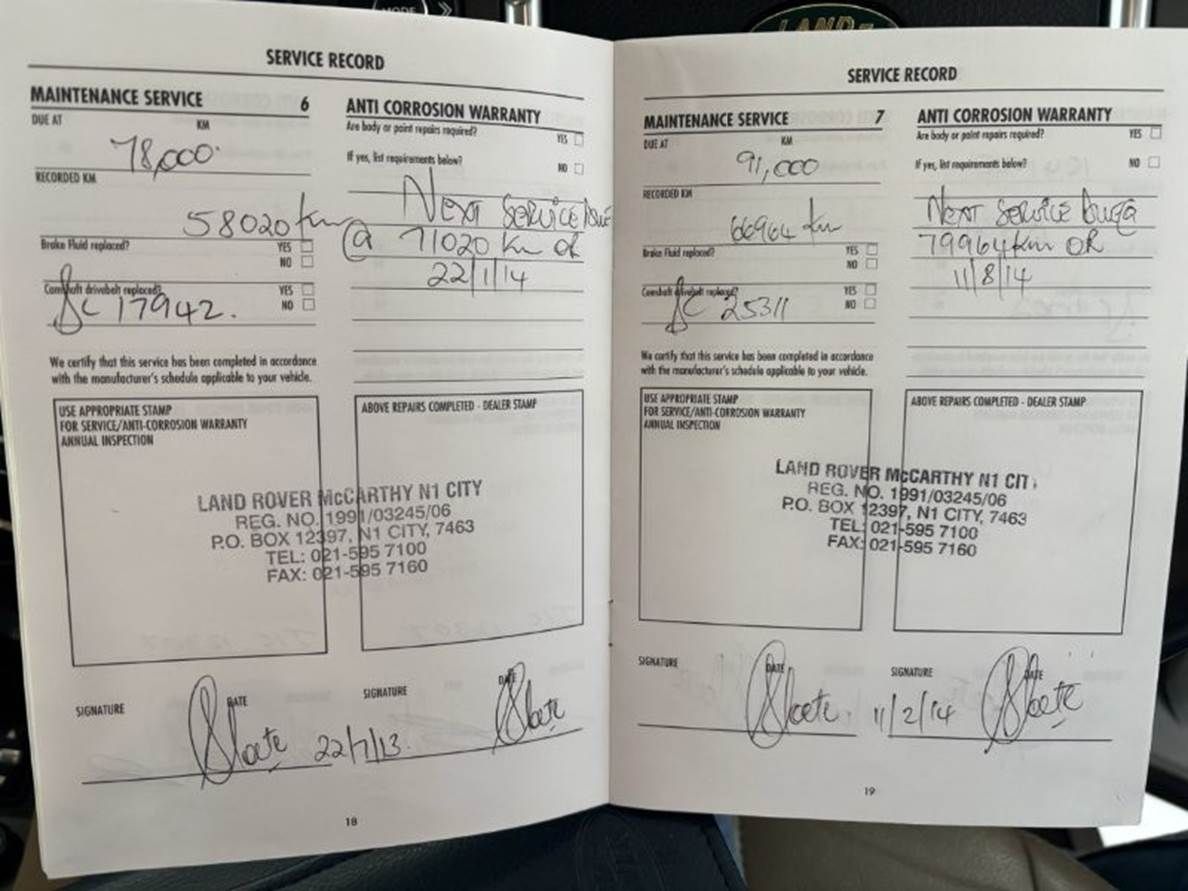 MODE
LAND
SERVICE RECORD
MAINTENANCE SERVICE 6
DUE AT KM
78,000
RECORDED KM
58020 km
Brake Fluid replaced? YES
NO
Camshaft drivebelt replaced? YES
NO
JC 17942.
We certify that this service has been completed in accordance
with the manufacturer's schedule applicable to your vehicle.
USE APPROPRIATE STAMP
FOR SERVICE/ANTI-CORROSION WARRANTY
ANNUAL INSPECTION
ANTI CORROSION WARRANTY
Are body or paint repairs required? YES
If yes, list requirements below? NO
NEXT SERVICE DUE
@ 71020 km OR
22/1/14
ABOVE REPAIRS COMPLETED - DEALER STAMP
LAND ROVER McCARTHY N1 CITY
REG. NO. 1991/03245/06
P.O. BOX 12397, N1 CITY, 7463
TEL: 021-595 7100
FAX: 021-595 7160
SIGNATURE DATE
22/7/13.
SIGNATURE DATE
18
SERVICE RECORD
MAINTENANCE SERVICE 7
DUE AT KM
91,000
RECORDED KM
66964 km
Brake Fluid replaced? YES
NO
Camshaft drivebelt replaced? YES
NO
JC 25311
We certify that this service has been completed in accordance
with the manufacturer's schedule applicable to your vehicle.
USE APPROPRIATE STAMP
FOR SERVICE/ANTI-CORROSION WARRANTY
ANNUAL INSPECTION
ANTI CORROSION WARRANTY
Are body or paint repairs required? YES
If yes, list requirements below? NO
NEXT SERVICE DUE@
79964km OR
11/8/14
ABOVE REPAIRS COMPLETED - DEALER STAMP
LAND ROVER McCARTHY N1 CIT
REG. NO. 1991/03245/06
P.O. BOX 12397, N1 CITY, 7463
TEL: 021-595 7100
FAX: 021-595 7160
SIGNATURE DATE
11/2/14
SIGNATURE DATE
19